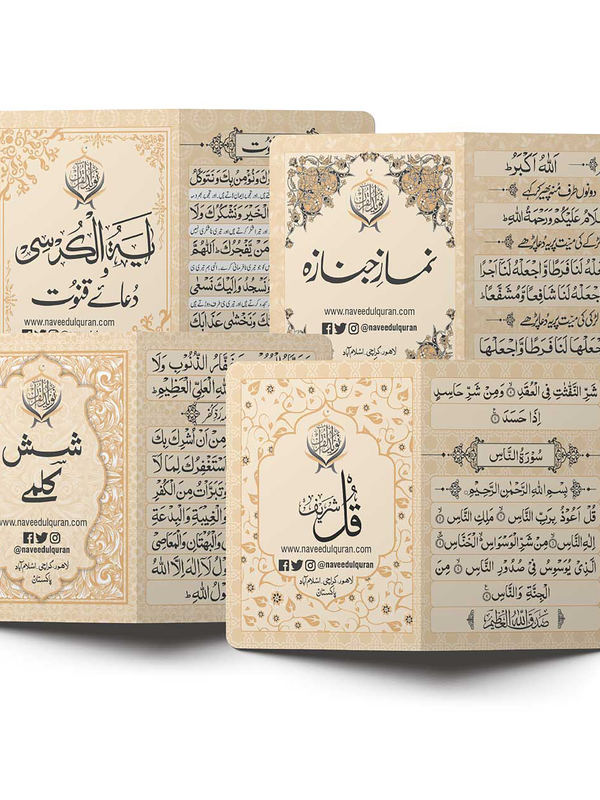 آیۃ الکرسی
و
دعائے قنوت
www.naveedulquran.com
وَنُؤْمِنُ بِكَ وَنَتَوَكَّلُ
الْخَيْرَ وَنَشْكُرُكَ وَلَا
مَنْ يَّفْجُرُكَ ؕ اَللّٰهُمَّ
وَنَسْجُدُ وَاِلَيْكَ نَسْعٰى
وَنَخْشٰى عَذَابَكَ
نماز جنازہ
www.naveedulquran.com
@naveedulquran
لاهور، کراچی، اسلام آباد
اَللّٰهُ اَكْبَرُ ؕ
دونوں طرف منہ پھیر کر کہے
اَلسَّلَامُ عَلَيْكُمْ وَرَحْمَةُ اللّٰهِ ؕ
لڑکے کی میت پر یہ دعا پڑھے
اجْعَلْهُ لَنَا فَرَطًا وَّاجْعَلْهُ لَنَا اَجْرًا
وَاجْعَلْهُ لَنَا شَافِعًا وَّمُشَفَّعًا ؕ
لڑکی کی میت پر یہ دعا پڑھے
اجْعَلْهَا لَنَا فَرَطًا وَّاجْعَلْهَا
شش
کلمے
www.naveedulquran.com
@naveedulquran
لاهور، کراچی، اسلام آباد
پاکستان
الذُّنُوْبِ وَلَا
اللّٰهِ الْعَلِيِّ الْعَظِيْمِ ؕ
مِنْ اَنْ اُشْرِكَ بِكَ
اَسْتَغْفِرُكَ لِمَا لَا
وَتَبَرَّاْتُ مِنَ الْكُفْرِ
وَالْغِيْبَةِ وَالْبِدْعَةِ
وَالْبُهْتَانِ وَالْمَعَاصِيْ
لَا اِلٰهَ اِلَّا اللّٰهُ
رَسُوْلُ اللّٰهِ ؕ
قُل شریف
www.naveedulquran.com
@naveedulquran
لاهور، کراچی، اسلام آباد
پاکستان
شَرِّ النَّفّٰثٰتِ فِي الْعُقَدِ ۙ وَمِنْ شَرِّ حَاسِدٍ
اِذَا حَسَدَ
سُوْرَةُ النَّاسِ
بِسْمِ اللّٰهِ الرَّحْمٰنِ الرَّحِيْمِ
قُلْ اَعُوْذُ بِرَبِّ النَّاسِ ۙ مَلِكِ النَّاسِ ۙ
اِلٰهِ النَّاسِ ۙ مِنْ شَرِّ الْوَسْوَاسِ ۙ الْخَنَّاسِ ۙ
الَّذِيْ يُوَسْوِسُ فِيْ صُدُوْرِ النَّاسِ ۙ مِنَ
الْجِنَّةِ وَالنَّاسِ
صَدَقَ اللّٰهُ الْعَظِيْمُ